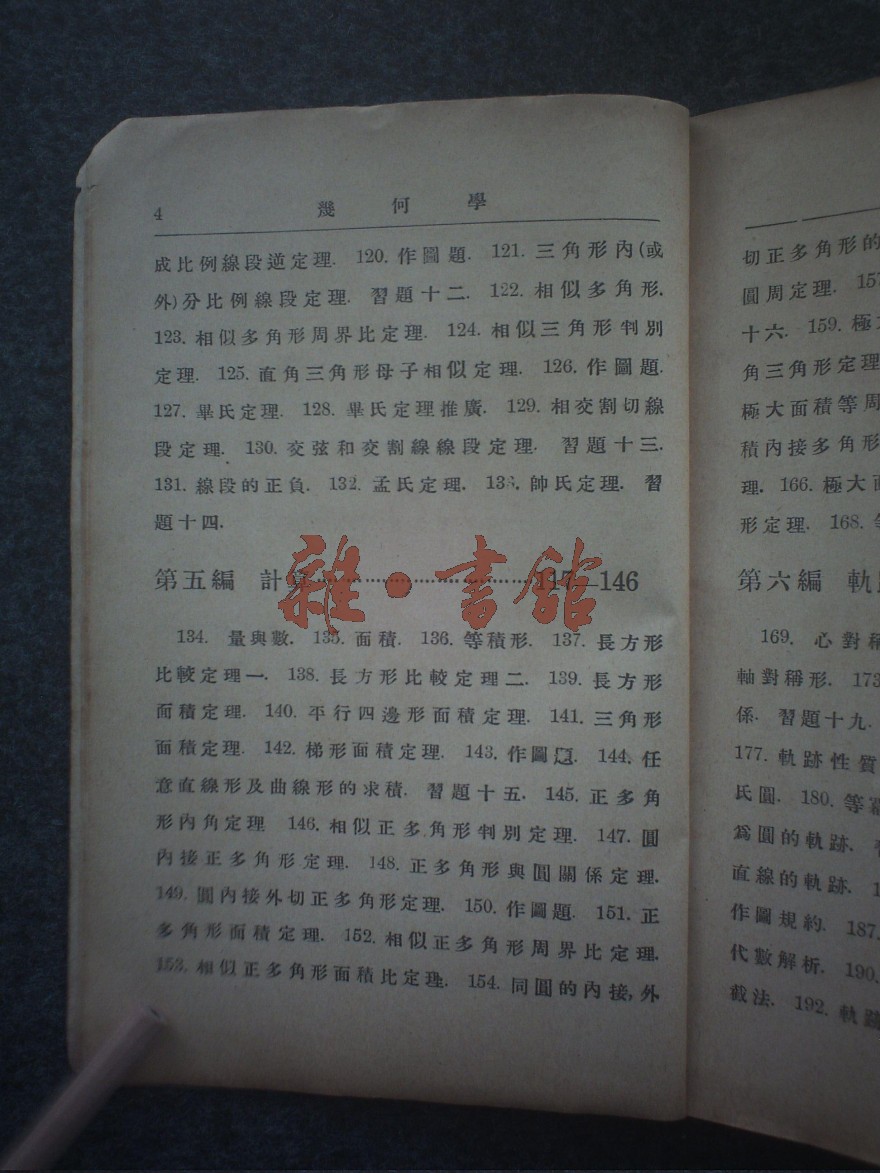 4 幾何學
成比例線段逆定理. 120. 作圖題. 121. 三角形內(或
外)分比例線段定理. 習題十二. 122. 相似多角形.
123. 相似多角形周界比定理. 124. 相似三角形判別
定理. 125. 直角三角形母子相似定理. 126. 作圖題.
127. 畢氏定理. 128. 畢氏定理推廣. 129. 相交割切線
段定理. 130. 交弦和交割線線段定理. 習題十三.
131. 線段的正負. 132. 孟氏定理. 133. 帥氏定理. 習
題十四.
第五編 計算……………………117—146
雜·書館
134. 量與數. 135. 面積. 136. 等積形. 137. 長方形
比較定理一. 138. 長方形比較定理二. 139. 長方形
面積定理. 140. 平行四邊形面積定理. 141. 三角形
面積定理. 142. 梯形面積定理. 143. 作圖題. 144. 任
意直線形及曲線形的求積. 習題十五. 145. 正多角
形內角定理 146. 相似正多角形判別定理. 147. 圓
內接正多角形定理. 148. 正多角形與圓關係定理.
149. 圓內接外切正多角形定理. 150. 作圖題. 151. 正
多角形面積定理. 152. 相似正多角形周界比定理.
153. 相似正多角形面積比定理. 154. 同圓的內接,外
切正多角形的
圓周定理. 157
十六. 159. 極
角三角形定理
極大面積等周
積內接多角形
理. 166. 極大面
形定理. 168. 
第六編 軌
169. 心對稱
軸對稱形. 173
係. 習題十九.
177. 軌跡性質
氏圓. 180. 等冪
爲圓的軌跡.
直線的軌跡.
作圖規約. 187.
代數解析. 190.
截法. 192. 軌跡